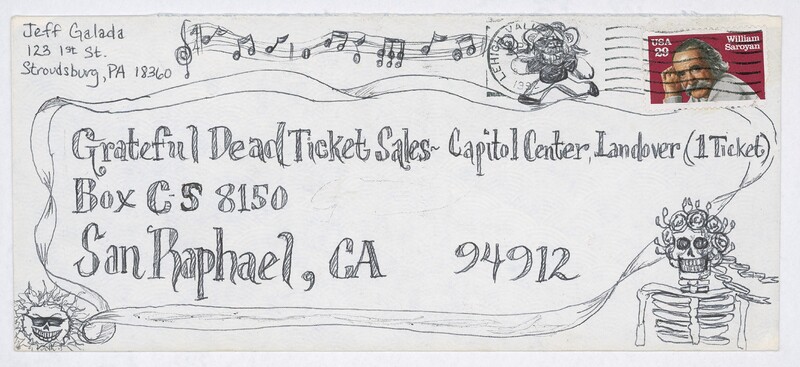 Jeff Galada
123 1st St.
Stroudsburg, PA 18360
LEHIGH VALLEY
USA
29
William
Saroyan
Grateful Dead Ticket Sales~ Capitol Center, Landover (1 Ticket)
Box C-S 8150
San Raphael, CA 94912